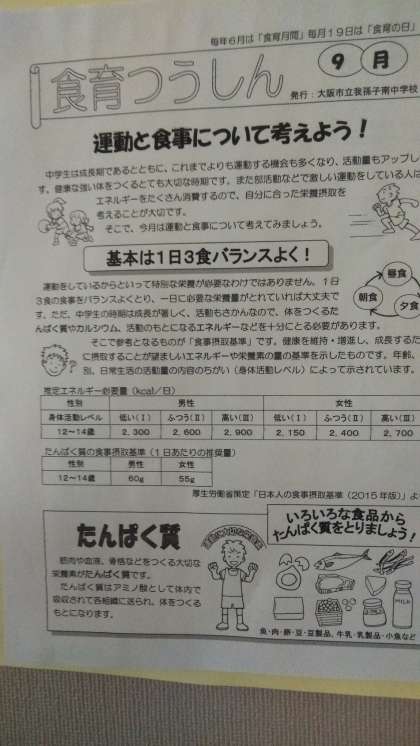 毎年6月は「食育月間」毎月19日は「食育の日」
食育つうしん
9月
発行：大阪市立我孫子南中学校
運動と食事について考えよう！
中学生は成長期であるとともに、これまでよりも運動する機会も多くなり、活動量もアップし
す。健康な強い体をつくるとても大切な時期です。また部活動などで激しい運動をしている人は
エネルギーをたくさん消費するので、自分に合った栄養摂取を
考えることが大切です。
そこで、今月は運動と食事について考えてみましょう。
基本は1日3食バランスよく！
運動をしているからといって特別な栄養が必要なわけではありません。1日
3食の食事をバランスよくとり、一日に必要な栄養量がとれていれば大丈夫で
す。ただ、中学生の時期は成長が著しく、活動もさかんなので、体をつくるた
んぱく質やカルシウム、活動のもとになるエネルギーなどを十分にとる必要があります。
昼食
朝食
夕食
そこで参考となるものが「食事摂取基準」です。健康を維持・増進し、成長するた
に摂取することが望ましいエネルギーや栄養素の量の基準を示したものです。年齢、
別、日常生活の活動量の内容のちがい（身体活動レベル）によって示されています。
推定エネルギー必要量（kcal／日）
性別 男性 女性
身体活動レベル 低い（Ⅰ） ふつう（Ⅱ） 高い（Ⅲ） 低い（Ⅰ） ふつう（Ⅱ） 高い（Ⅲ）
12～14歳 2,300 2,600 2,900 2,150 2,400 2,700
たんぱく質の食事摂取基準（1日あたりの推奨量）
性別 男性 女性
12～14歳 60g 55g
厚生労働省策定「日本人の食事摂取基準（2015年版）」よ
たんぱく質
筋肉や血液、骨格などをつくる大切な
栄養素がたんぱく質です。
たんぱく質はアミノ酸として体内で
吸収されて各組織に送られ、体をつくる
もとになります。
いろいろな食品から
たんぱく質をとりましょう！
MILK
魚・肉・卵・豆・豆製品、牛乳・乳製品・小魚など